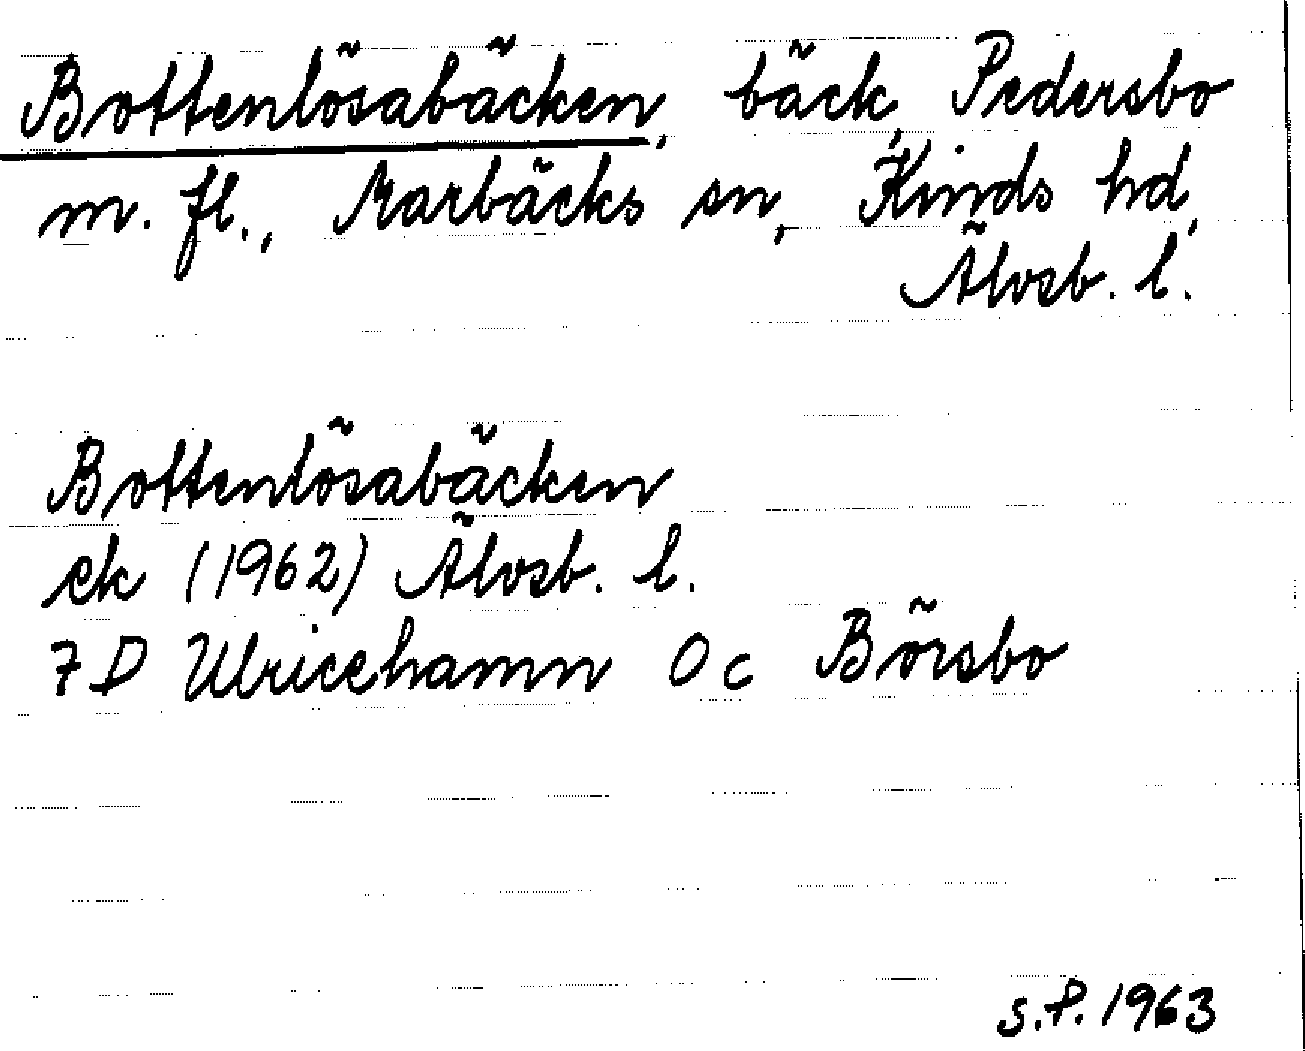 Bottenlösabäcken, bäck, Pedersbo
m. fl., Marbäcks sn, Kinds hd,
Älvsb. l.
Bottenlösabäcken
ek (1962) Älvsb. l.
7 D Ulricehamn 0 c Börsbo
S.P. 1963